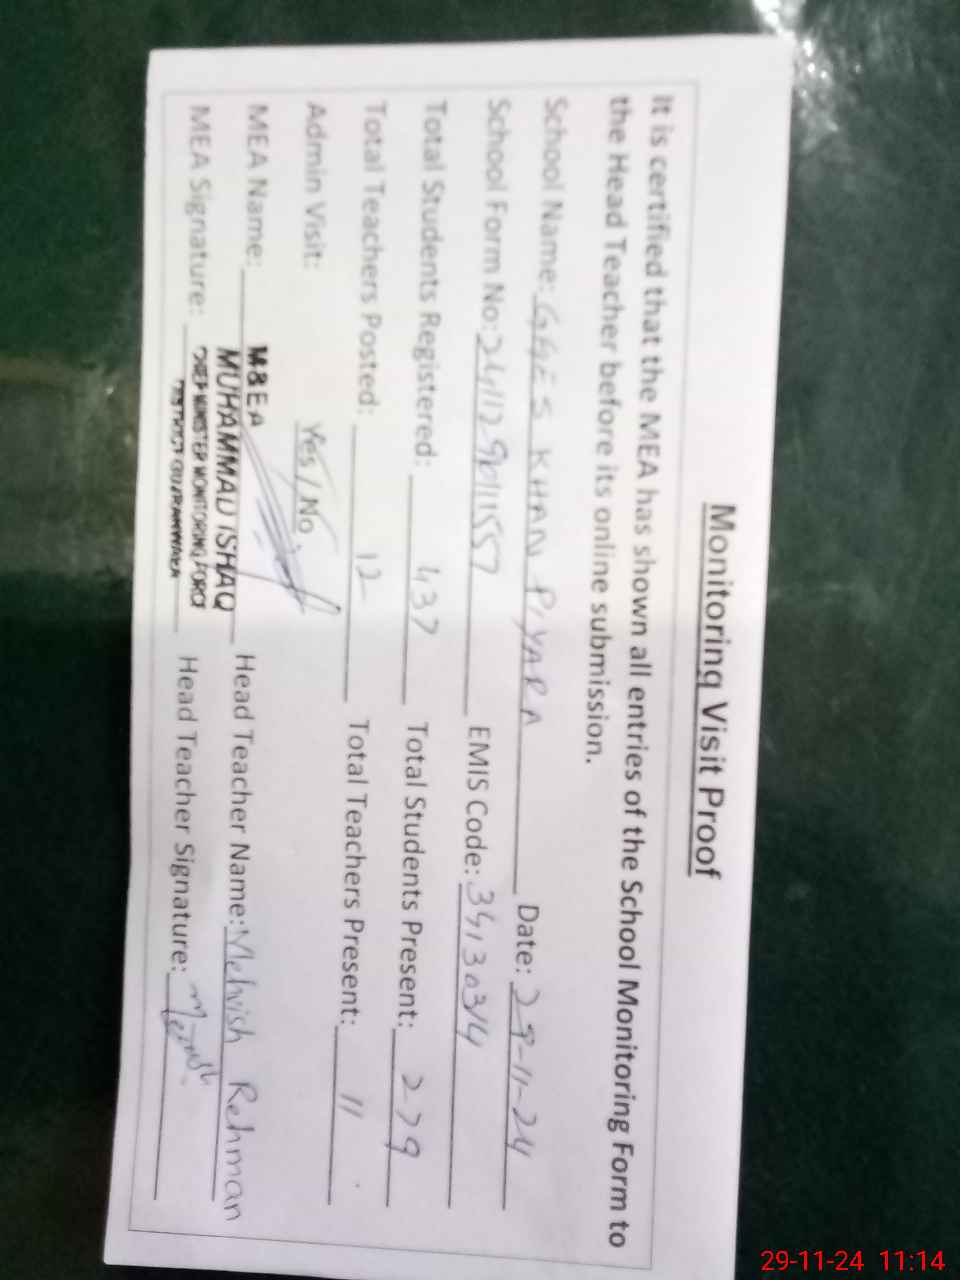 Monitoring Visit Proof
It is certified that the MEA has shown all entries of the School Monitoring Form to
the Head Teacher before its online submission.
School Name: GGES KHAN PIYARA Date: 29-11-24
School Form No: EMIS Code: 34130314
Total Students Registered: 437 Total Students Present: 279
Total Teachers Posted: 12 Total Teachers Present: 11
Admin Visit: Yes / No
M&EA
MEA Name: MUHAMMAD ISHAQ Head Teacher Name: Mehvish Rehman
MEA Signature: CHIEF MINISTER MONITORING FORCE Head Teacher Signature:
DISTRICT GUJRANWALA
29-11-24 11:14